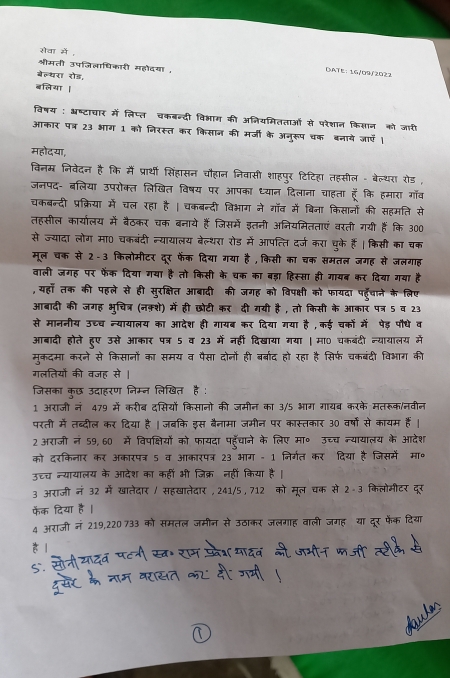 सेवा में ,
श्रीमती उपजिलाधिकारी महोदया ,
DATE: 16/09/2022
बेल्थरा रोड,
बलिया |
विषय : भ्रष्टाचार में लिप्त चकबन्दी विभाग की अनियमितताओं से परेशान किसान को जारी
आकार पत्र 23 भाग 1 को निरस्त कर किसान की मर्जी के अनुरूप चक बनाये जाएँ |
महोदया,
विनम्र निवेदन है कि मैं प्रार्थी सिंहासन चौहान निवासी शाहपुर टिटिहा तहसील - बेल्थरा रोड ,
जनपद- बलिया उपरोक्त लिखित विषय पर आपका ध्यान दिलाना चाहता हूँ कि हमारा गाँव
चकबन्दी प्रक्रिया में चल रहा है | चकबन्दी विभाग ने गाँव में बिना किसानों की सहमति से
तहसील कार्यालय में बैठकर चक बनाये हैं जिसमें इतनी अनियमितताएं वरती गयी हैं कि 300
से ज्यादा लोग मा0 चकबंदी न्यायालय बेल्थरा रोड में आपत्ति दर्ज करा चुके हैं | किसी का चक
मूल चक से 2 - 3 किलोमीटर दूर फेंक दिया गया है , किसी का चक समतल जगह से जलगाह
वाली जगह पर फेंक दिया गया है तो किसी के चक का बड़ा हिस्सा ही गायब कर दिया गया है
, यहाँ तक की पहले से ही सुरक्षित आबादी की जगह को विपक्षी को फायदा पहुँचाने के लिए
आबादी की जगह भुचित्र (नक़्शे) में ही छोटी कर दी गयी है , तो किसी के आकार पत्र 5 व 23
से माननीय उच्च न्यायालय का आदेश ही गायब कर दिया गया है ,कई चकों में पेड़ पौधे व
आबादी होते हुए उसे आकार पत्र 5 व 23 में नहीं दिखाया गया | मा0 चकबन्दी न्यायालय में
मुकदमा करने से किसानों का समय व पैसा दोनों ही बर्बाद हो रहा है सिर्फ चकबन्दी विभाग की
गलतियों की वजह से |
जिसका कुछ उदाहरण निम्न लिखित है :
1 अराजी नं 479 में करीब दसियों किसानो की जमीन का 3/5 भाग गायब करके मतरूक/नवीन
परती में तब्दील कर दिया है | जबकि इस बैनामा जमीन पर कास्तकार 30 वर्षों से कायम हैं |
2 अराजी नं 59, 60 में विपक्षियों को फायदा पहुँचाने के लिए मा० उच्च न्यायालय के आदेश
को दरकिनार कर अकारपत्र 5 व आकारपत्र 23 भाग - 1 निर्गत कर दिया है जिसमें मा०
उच्च न्यायालय के आदेश का कहीं भी जिक्र नहीं किया है |
3 अराजी नं 32 में खातेदार / सहखातेदार , 241/5 , 712 को मूल चक से 2 - 3 किलोमीटर दूर
फेंक दिया है |
4 अराजी नं 219,220 733 को समतल जमीन से उठाकर जलगाह वाली जगह या दूर फेंक दिया
है |
5. सोनी यादव पत्नी स्व० राम प्रवेश यादव की जमीन फर्जी तरीके से
दूसरे के नाम वरासत कर दी गयी |
1